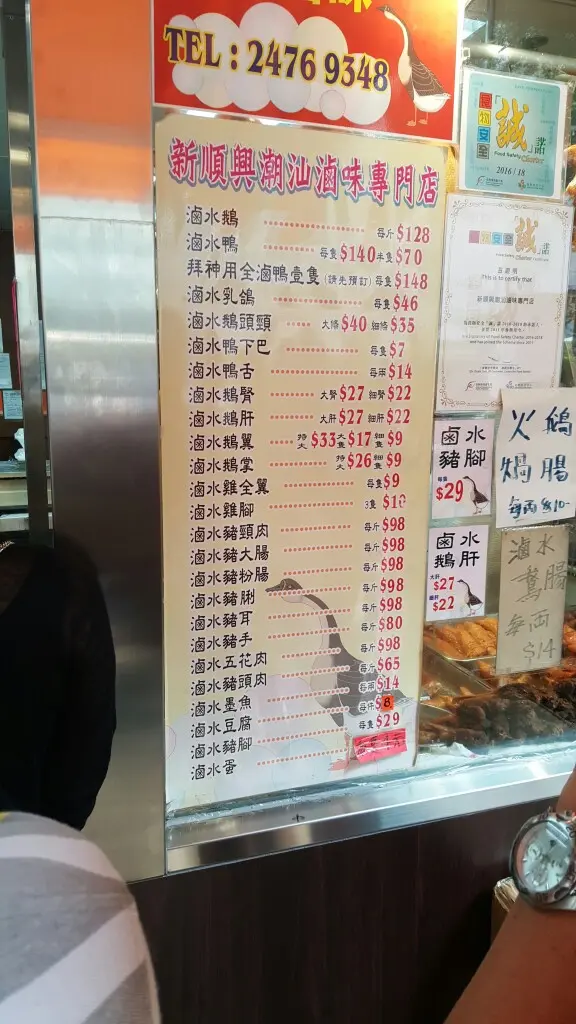 TEL : 2476 9348
新順興潮汕滷味專門店
滷水鵝 每斤$128
滷水鴨 每隻$140半隻$70
拜神用全滷鴨壹隻(請先預訂)每隻$148
滷水乳鴿 每隻$46
滷水鵝頭頸 大條$40 細條$35
滷水鴨下巴 每隻$7
滷水鴨舌 每兩$14
滷水鵝腎 大腎$27 細腎$22
滷水鵝肝 大肝$27 細肝$22
滷水鵝翼 特大$33大隻$17細隻$9
滷水鵝掌 特大$26細隻$9
滷水雞全翼 每隻$9
滷水雞腳 3隻$10
滷水豬頸肉 每斤$98
滷水豬大腸 每斤$98
滷水豬粉腸 每斤$98
滷水豬脷 每斤$98
滷水豬耳 每斤$98
滷水豬手 每斤$80
滷水五花肉 每斤$98
滷水豬頭肉 每斤$65
滷水墨魚 每兩$14
滷水豆腐 每件$8
滷水豬腳 每隻$29
滷水蛋
食物安全「誠」諾
Food Safety Charter
2016/18
食物安全「誠」諾
This is to certify that
新順興潮汕滷味專門店
鹵水
豬腳
每隻
$29
鹵水
鵝肝
大肝
$27
細肝
$22
火鵝
焗腸
每両$10-
滷水
鵞腸
每両
$14